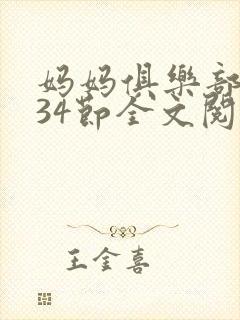 妈妈俱樂部
34節全文閱
王金喜